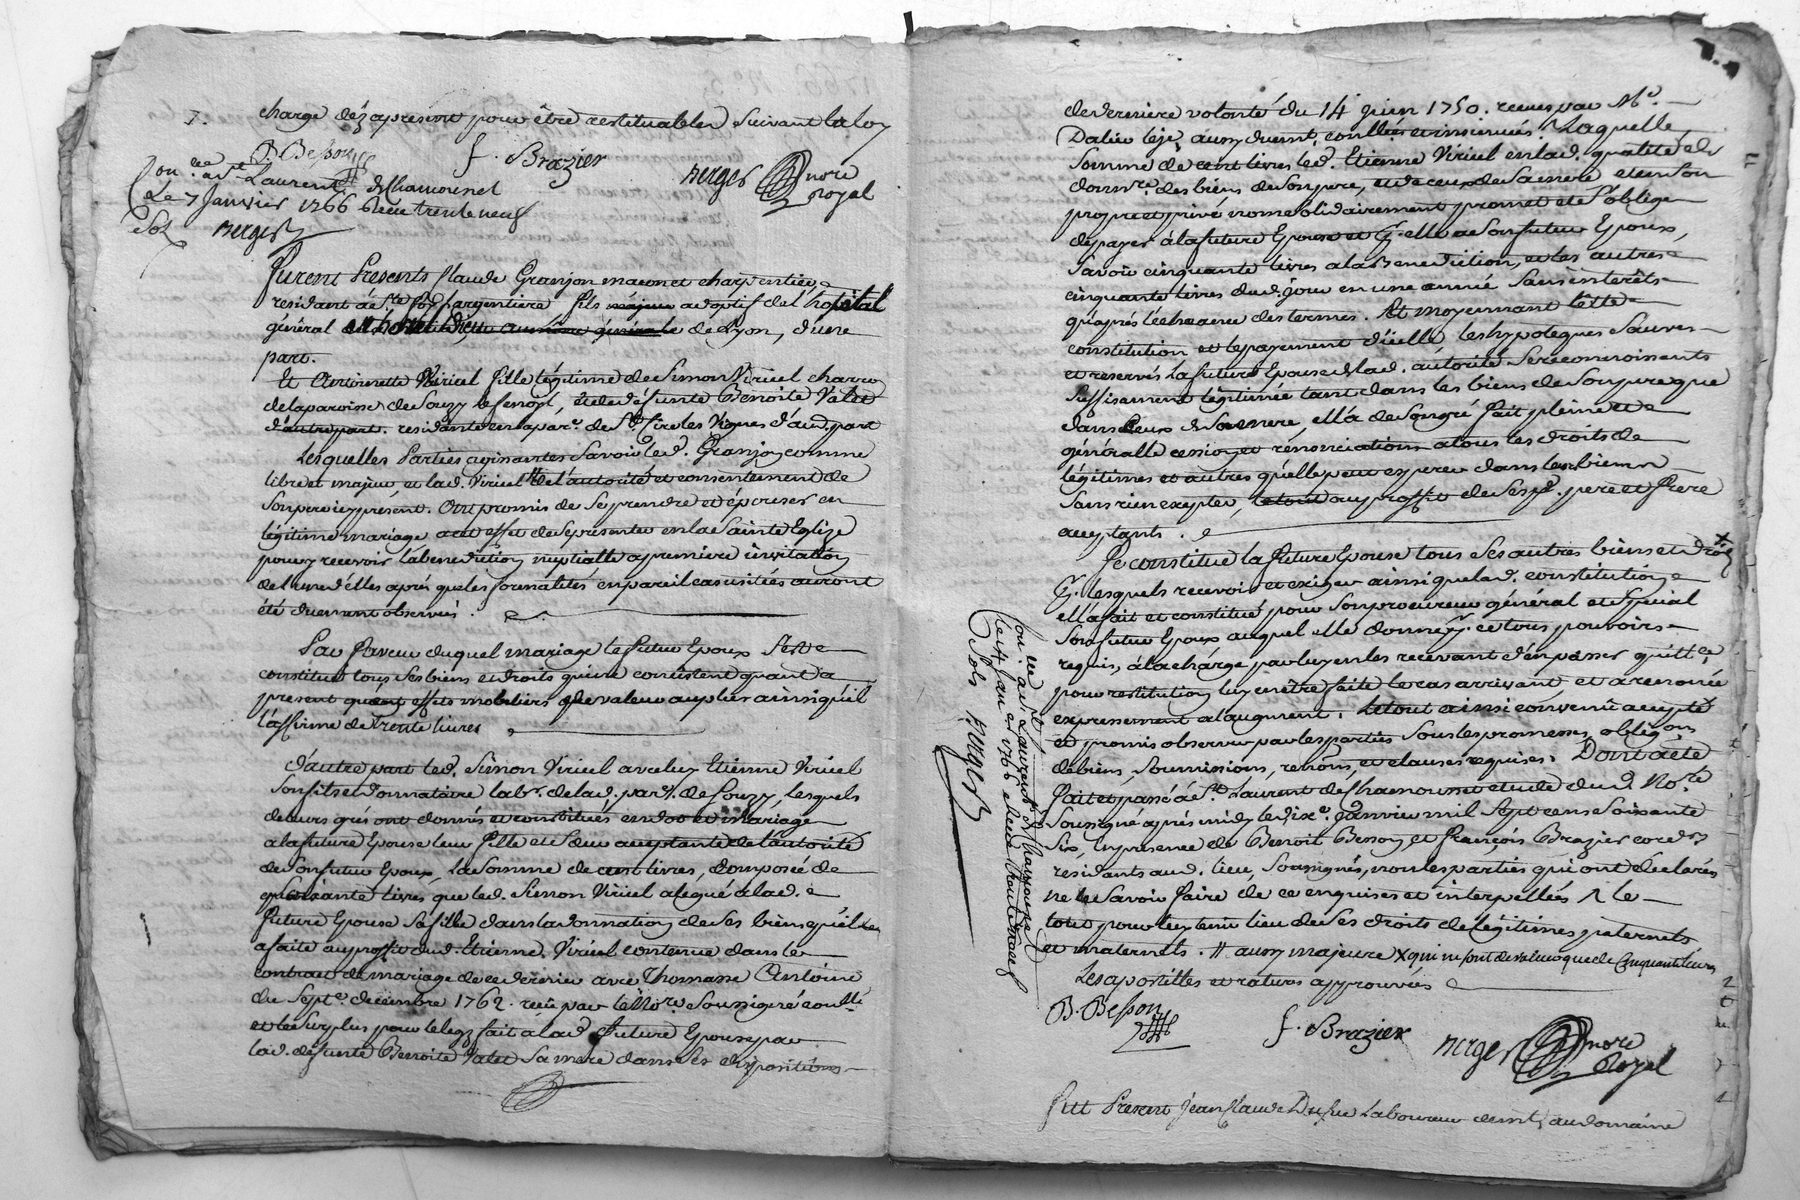 charge déz apresent pour être restituables suivant la loy
B. Besson
f. Brazier
Berger nore royal
Laurent de Chamousset
Le 7 Janvier 1766
Sols Berger
furent Presents Claude Granjon macon et charpentier
residant à Ste foy l'argentiere fils majeur adoptif de l'hopital
général de Lyon, d'une
part.
Et Antoinette Viricel fille légitime de Simon Viricel charron
de la paroisse de Souzy et de défunte Benoite Valet
d'autre part. residante en la parr. de St. les Vignes d'aud. part
Lesquelles Parties agissantes savoir led. Granjon comme
libre et majeur, et lad. Viricel de l'autorité et consentement de
son pere icy présent. Ont promis de se prendre et épouser en
légitime mariage a cet effet de se présenter en la Sainte Eglize
pour y recevoir la benediction nuptialle a premiere invitation
de l'une d'elles aprés que les formalités en pareil cas usitées auront
été duement observées.
En faveur duquel mariage le futur Epoux s'est
constitué tous ses biens et droits qui ne consistent quant a
present qu'en effets mobiliers de valeur au plus ainsi qu'il
l'affirme de trente livres
D'autre part led. Simon Viricel avec luy Etienne Viricel
son fils et donnataire labr. de lad. parr. de Souzy, lesquels
de leurs gré ont donnés et constitués en dot et mariage
a la future Epouse leur fille et seur acceptante de l'autorité
de son futur Epoux, la somme de cent livres, composée de
soixante livres que led. Simon Viricel a legué a lad.
future Epouse sa fille dans la donnation de ses biens qu'il
a faite au proffit dud. Etienne Viricel contenue dans le
contract de mariage de ce dernier avec Thomasse Antoine
du Septe. decembre 1762. reçu par le nore. Soussigné
et le surplus pour le legs fait a lad. future Epouse par
lad. défunte Benoite Valet sa mere dans ses dispositions
de derniere volonté du 14 Juin 1750. recues par Me.
Laquelle
somme de cent livres led. Etienne Viricel en lad. qualité de
donnre. des biens de son pere, et de ceux de sa mere et en son
propre et privé nom solidairement promet et s'oblige
de payer à la future Epouse et elle a son futur Epoux,
savoir cinquante livres a la Benediction, et les autres
cinquante livres dud. jour en une année sans intérêts
qu'aprés l'échéance des termes. Et moyennant cette
constitution et le payement d'icelle les hypoteques sauves
et reservés la future Epouse de lad. autorité se reconnoissant
suffisament légitimée tant dans les biens de son pere que
dans ceux de sa mere, ell'a de son gré fait pleine et
généralle cession et rénonciation a tous les droits de
légitimes et autres qu'elle peut espérer dans les biens
sans rien excepter, le tout au proffit de ses pere et frere
acceptants.
Se constitue la future Epouse tous ses autres biens et droits
Pr. lesquels recevoir et exiger ainsi que lad. constitution
ell'a fait et constitué pour son procureur général et spécial
son futur Epoux auquel elle donne tous pouvoirs
requis, à la charge par luy en les recevant d'en passer quittce.
pour restitution luy en être faite le cas arrivant, et a renoncé
expressement a l'augment. Le tout ainsi convenu accepté
et promis observer par les parties sous les promesses, obligons
de biens, soumissions, renons, et clauses requises. Dont acte
fait et passé à St. Laurent de Chamousset etude dud. Nore.
soussigné aprés midy le dixe. Janvier mil sept cens soixante
six, en presence de Benoit Besson et François Brazier
residants aud. lieu, soussignés, non les parties qui ont declarés
ne le savoir faire de ce enquises et interpellés le
tout pour luy tenir lieu de ses droits de légitimes paternels
et maternels. # aussy majeure X qui ne sont de valeur que de cinquante livres
Les apostilles et ratures approuvées
B. Besson
f. Brazier
Berger nore royal
St. Laurent de Chamousset
1766
Sols Berger
fut Present Jean Claude Laboureur demt. au domaine